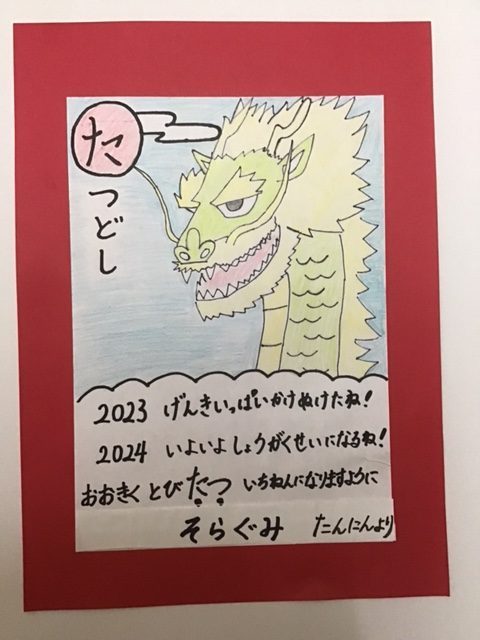 たつどし
2023 げんきいっぱいかけぬけたね!
2024 いよいよしょうがくせいになるね!
おおきく とびたつ いちねんになりますように
そらぐみ たんにんより